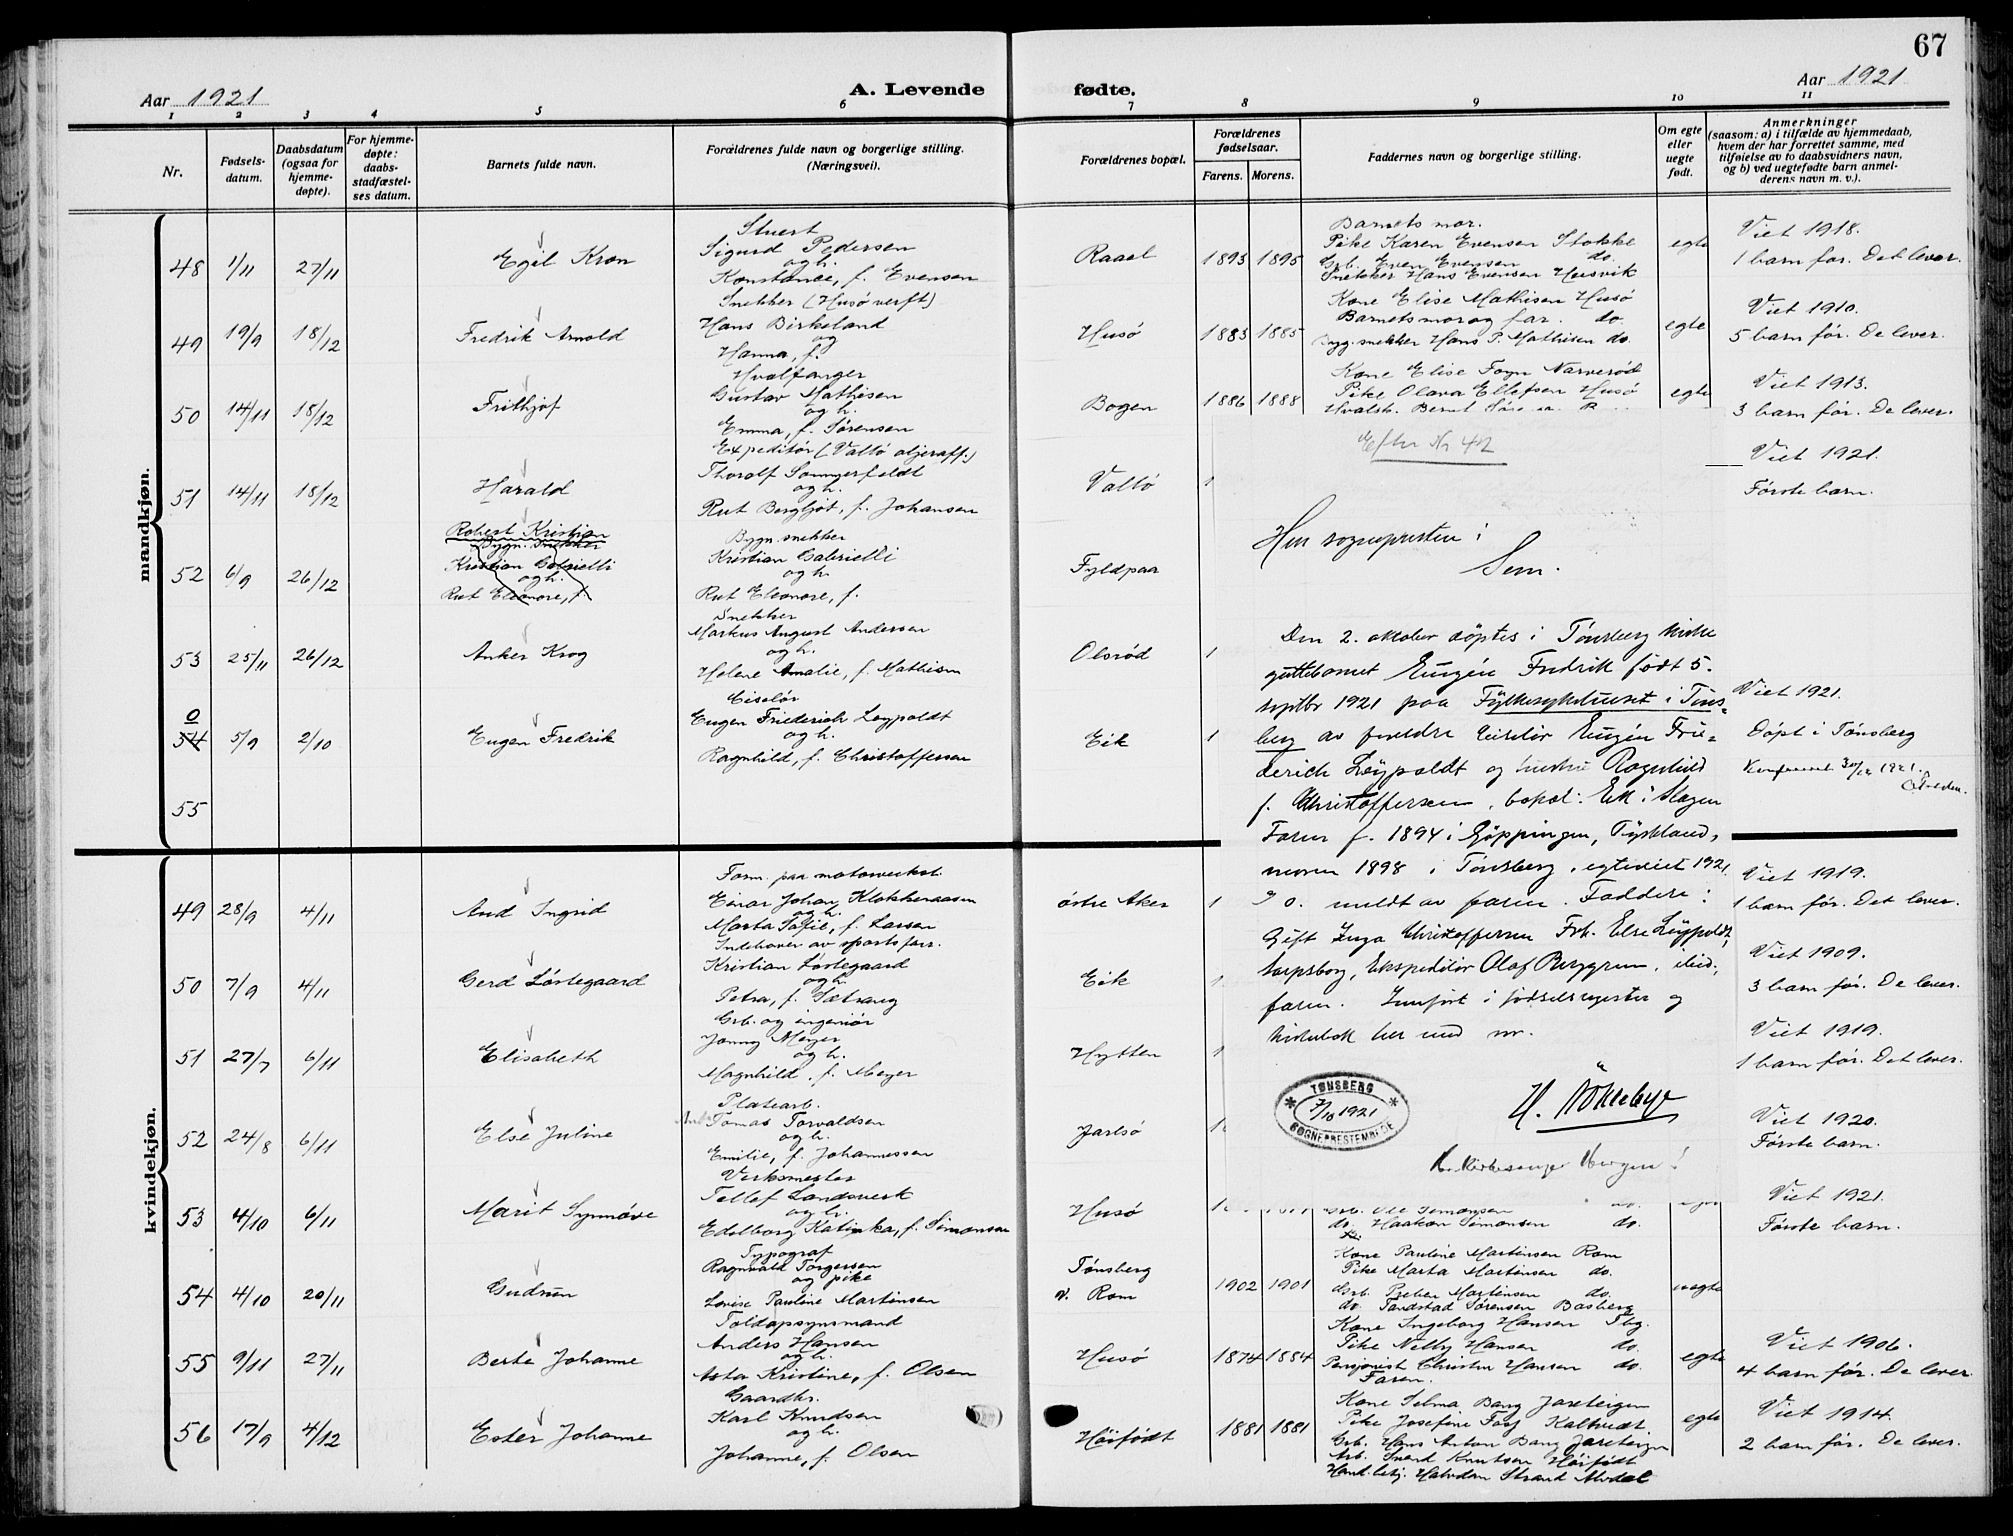 67
Aar 1921
A. Levende
fødte.
Aar 1921
1 2 3 4 5 6 7 8 9 10 11
Nr.
Fødsels-
datum.
Daabsdatum
(ogsaa for
hjemme-
døpte).
For hjemme-
døpte:
daabs-
stadfæstel-
ses datum.
Barnets fulde navn.
Forældrenes fulde navn og borgerlige stilling.
(Næringsvei).
Forældrenes bopæl.
Forældrenes
fødselsaar.
Farens. Morens.
Faddernes navn og borgerlige stilling.
Om egte
eller
uegte
født.
Anmerkninger
(saasom: a) i tilfælde av hjemmedaab,
hvem der har forrettet samme, med
tilføielse av to daabsvidners navn,
og b) ved uegtefødte barn anmel-
derens navn m. v.).
mandkjøn.
48 1/11 27/11 Egil Kron
Stuert
Sigurd Pedersen
og h.
Konstance, f. Evensen
Raael 1893 1895
Barnets mor.
Pike Karen Evensen Stokke
Grb. Even Evensen do.
Snekker Hans Evensen Heisvik
egte
Viet 1918.
1 barn før. Det lever.
49 19/9 18/12 Fredrik Arnold
Snekker (Husø verft)
Hans Birkeland
og
Hanna, f.
Husø 1883 1885
Kone Elise Mathisen Husø
Barnets mor og far. do.
Byg.snekker Hans P. Mathisen do.
egte
Viet 1910.
5 barn før. De lever.
50 14/11 18/12 Frithjof
Hvalfanger
Gustav Mathisen
og h.
Emma, f. Sørensen
Bogen 1886 1888
Kone Elise Fogn Narverød
Pike Olava Ellefsen Husø
Hvalsk. Bernt
egte
Viet 1913.
3 barn før. De lever.
51 14/11 18/12 Harald
Expeditør (Vallø oljeraff.)
Thoralf Sommerfeldt
og h.
Rut Bergljot, f. Johansen
Vallø 1
Viet 1921.
Første barn.
52 6/9 26/12 Robert Kristian
Bygn. snekker
Kristian Gabrielli
og h.
Rut Eleonore, f.
Bygn. snekker
Kristian Gabrielli
og h.
Rut Eleonore, f.
Fyldpaa
53 25/11 26/12 Anker Krog
Snekker
Markus August Andersen
og h.
Helene Amalie, f. Mathisen
Olsrød 1
0
54 5/9 2/10 Eugen Fredrik
Ciselør
Eugen Friederich Leypoldt
og h.
Ragnhild, f. Christoffersen
Eik 1
Viet 1921.
Døpt i Tønsberg
55
Efter Nr 42
Hr. sogneprsten i
Sem.
Den 2. oktober døptes i Tønsberg kirke
guttebarnet Eugén Fredrik født 5.
septbr 1921 paa Fylkesykehuset i Tøns-
berg av foreldre Ciselør Eugén Frie-
derich Leÿpoldt og hustru Ragnhild
f. Christoffersen, bopæl: Eik i Slagen
Faren f. 1894 i Göppingen, Tyskland,
moren 1898 i Tønsberg, egteviet 1921
0. meldt av faren. Faddere:
Gift Inga Christoffersen Frk. Else Leÿpoldt,
Sarpsborg, Ekspeditør Olaf Berggren, ibid.,
faren. Innført i fødselsregister og
kirkebok her med nr.
TØNSBERG
7/10 1921
SOGNEPRESTEMBEDE
kvindekjøn.
49 28/9 4/11 Aud Ingrid
Form. paa motorverkst.
Einar Johan Klokkeraasen
og h.
Marta Sofie, f. Larsen
østre Aker 1
Viet 1919.
1 barn før. Det lever.
50 7/9 4/11 Gerd Løvtegaard
Indehaver av sportsforr.
Kristian Løvtegaard
og h.
Petra, f. Sætrang
Eik 1
Viet 1909.
3 barn før. De lever.
51 27/7 6/11 Elisabeth
Grb. og ingeniør
Jonny Meyer
og h.
Magnhild, f. Meyer
Hytten 1
Viet 1919.
1 barn før. Det lever.
52 24/8 6/11 Else Juline
Platearb.
Tomas Torvaldsen
og h.
Emilie, f. Johannessen
Jarlsø 1
Viet 1920.
Første barn.
53 4/10 6/11 Marit Synnøve
Verksmester
Tellef Landsverk
og h.
Edelborg Katinka, f. Simonsen
Husø
Grb. Ole Simonsen
do. Haakon Simonsen do.
Viet 1921.
Første barn.
54 4/10 20/11 Gudrun
Typograf
Ragnvald Torgersen
og pike
Lovise Pauline Martinsen
Tønsberg
v. Rom 1902 1901
Kone Pauline Martinsen Rom
Pike Marta Martinsen do.
Grb. Preben Martinsen do.
do. Tandstad Sørensen Basberg
uegte
55 9/11 27/11 Berte Johanne
Toldopsynsmand
Anders Hansen
og h.
Asta Kristine, f. Olsen
Husø 1874 1884
Kone Ingeborg Hansen Tbg.
Pike Nelly Hansen do.
Pensjonist Christen Hansen do.
Faren.
egte
Viet 1906.
4 barn før. De lever
56 17/9 4/12 Ester Johanne
Gaardbr.
Karl Knudsen
og h.
Johanne, f. Olsen
Høifødt 1881 1881
Kone Selma Bang Jareteigen
Pike Josefine Foss Kaltvedt.
Grb. Hans Anton Bang Jareteigen
Arb. Sverd Knutsen Høifødt
Hand.betj. Halvdan Strand Ilvdal
egte
Viet 1914.
2 barn før. De lever.